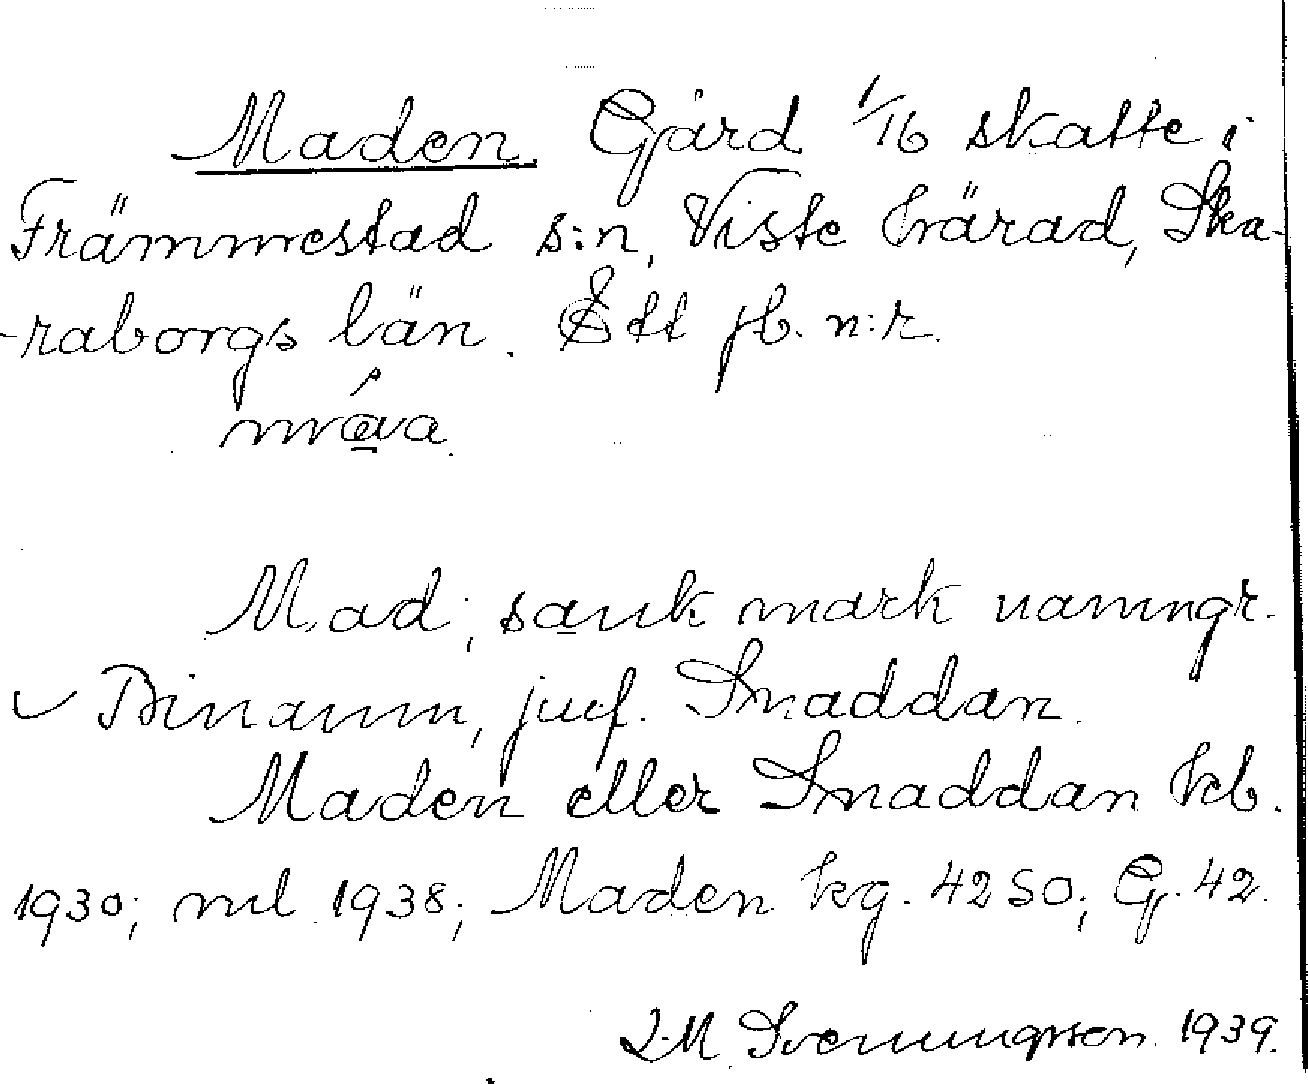 Maden. Gård 1/16 skatte i
Främmestad s:n, Viste härad, Ska-
-raborgs län. Ett jb. n:r.
Mad; sank mark namngr.
jmf. Smaddan.
Maden eller Smaddan hb.
1930; ml 1938; Maden kg. 4250; G. 42.
Svenungsson 1939.